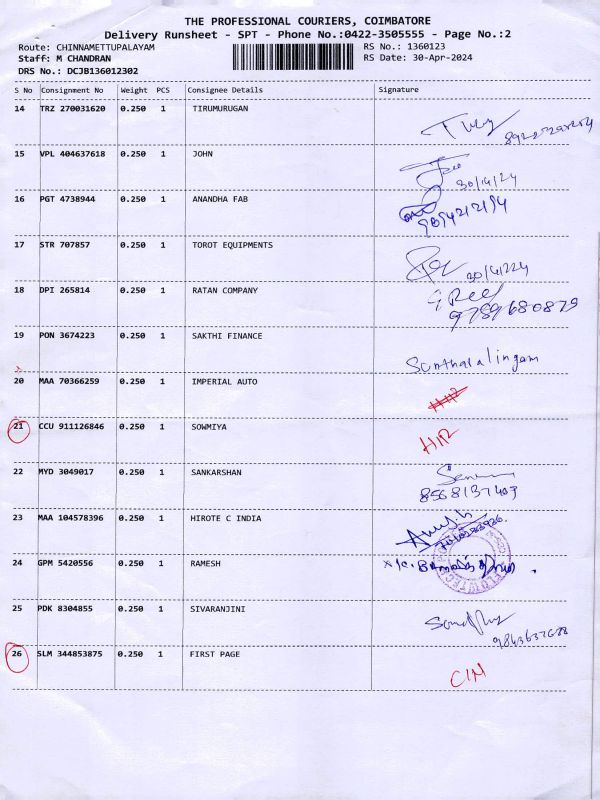 THE PROFESSIONAL COURIERS, COIMBATORE
Delivery Runsheet - SPT - Phone No.:0422-3505555 - Page No.:2
Route: CHINNAMETTUPALAYAM RS No.: 1360123
Staff: M CHANDRAN RS Date: 30-Apr-2024
DRS No.: DCJB136012302
S No Consignment No Weight PCS Consignee Details Signature
14 TRZ 270031620 0.250 1 TIRUMURUGAN
15 VPL 404637618 0.250 1 JOHN
30/4/24
16 PGT 4738944 0.250 1 ANANDHA FAB
17 STR 707857 0.250 1 TOROT EQUIPMENTS
18 DPI 265814 0.250 1 RATAN COMPANY
9789680879
19 PON 3674223 0.250 1 SAKTHI FINANCE
Suntharalingam
20 MAA 70366259 0.250 1 IMPERIAL AUTO
21 CCU 911126846 0.250 1 SOWMIYA
22 MYD 3049017 0.250 1 SANKARSHAN
8568137403
23 MAA 104578396 0.250 1 HIROTE C INDIA
24 GPM 5420556 0.250 1 RAMESH
25 PDK 8304855 0.250 1 SIVARANJINI
26 SLM 344853875 0.250 1 FIRST PAGE